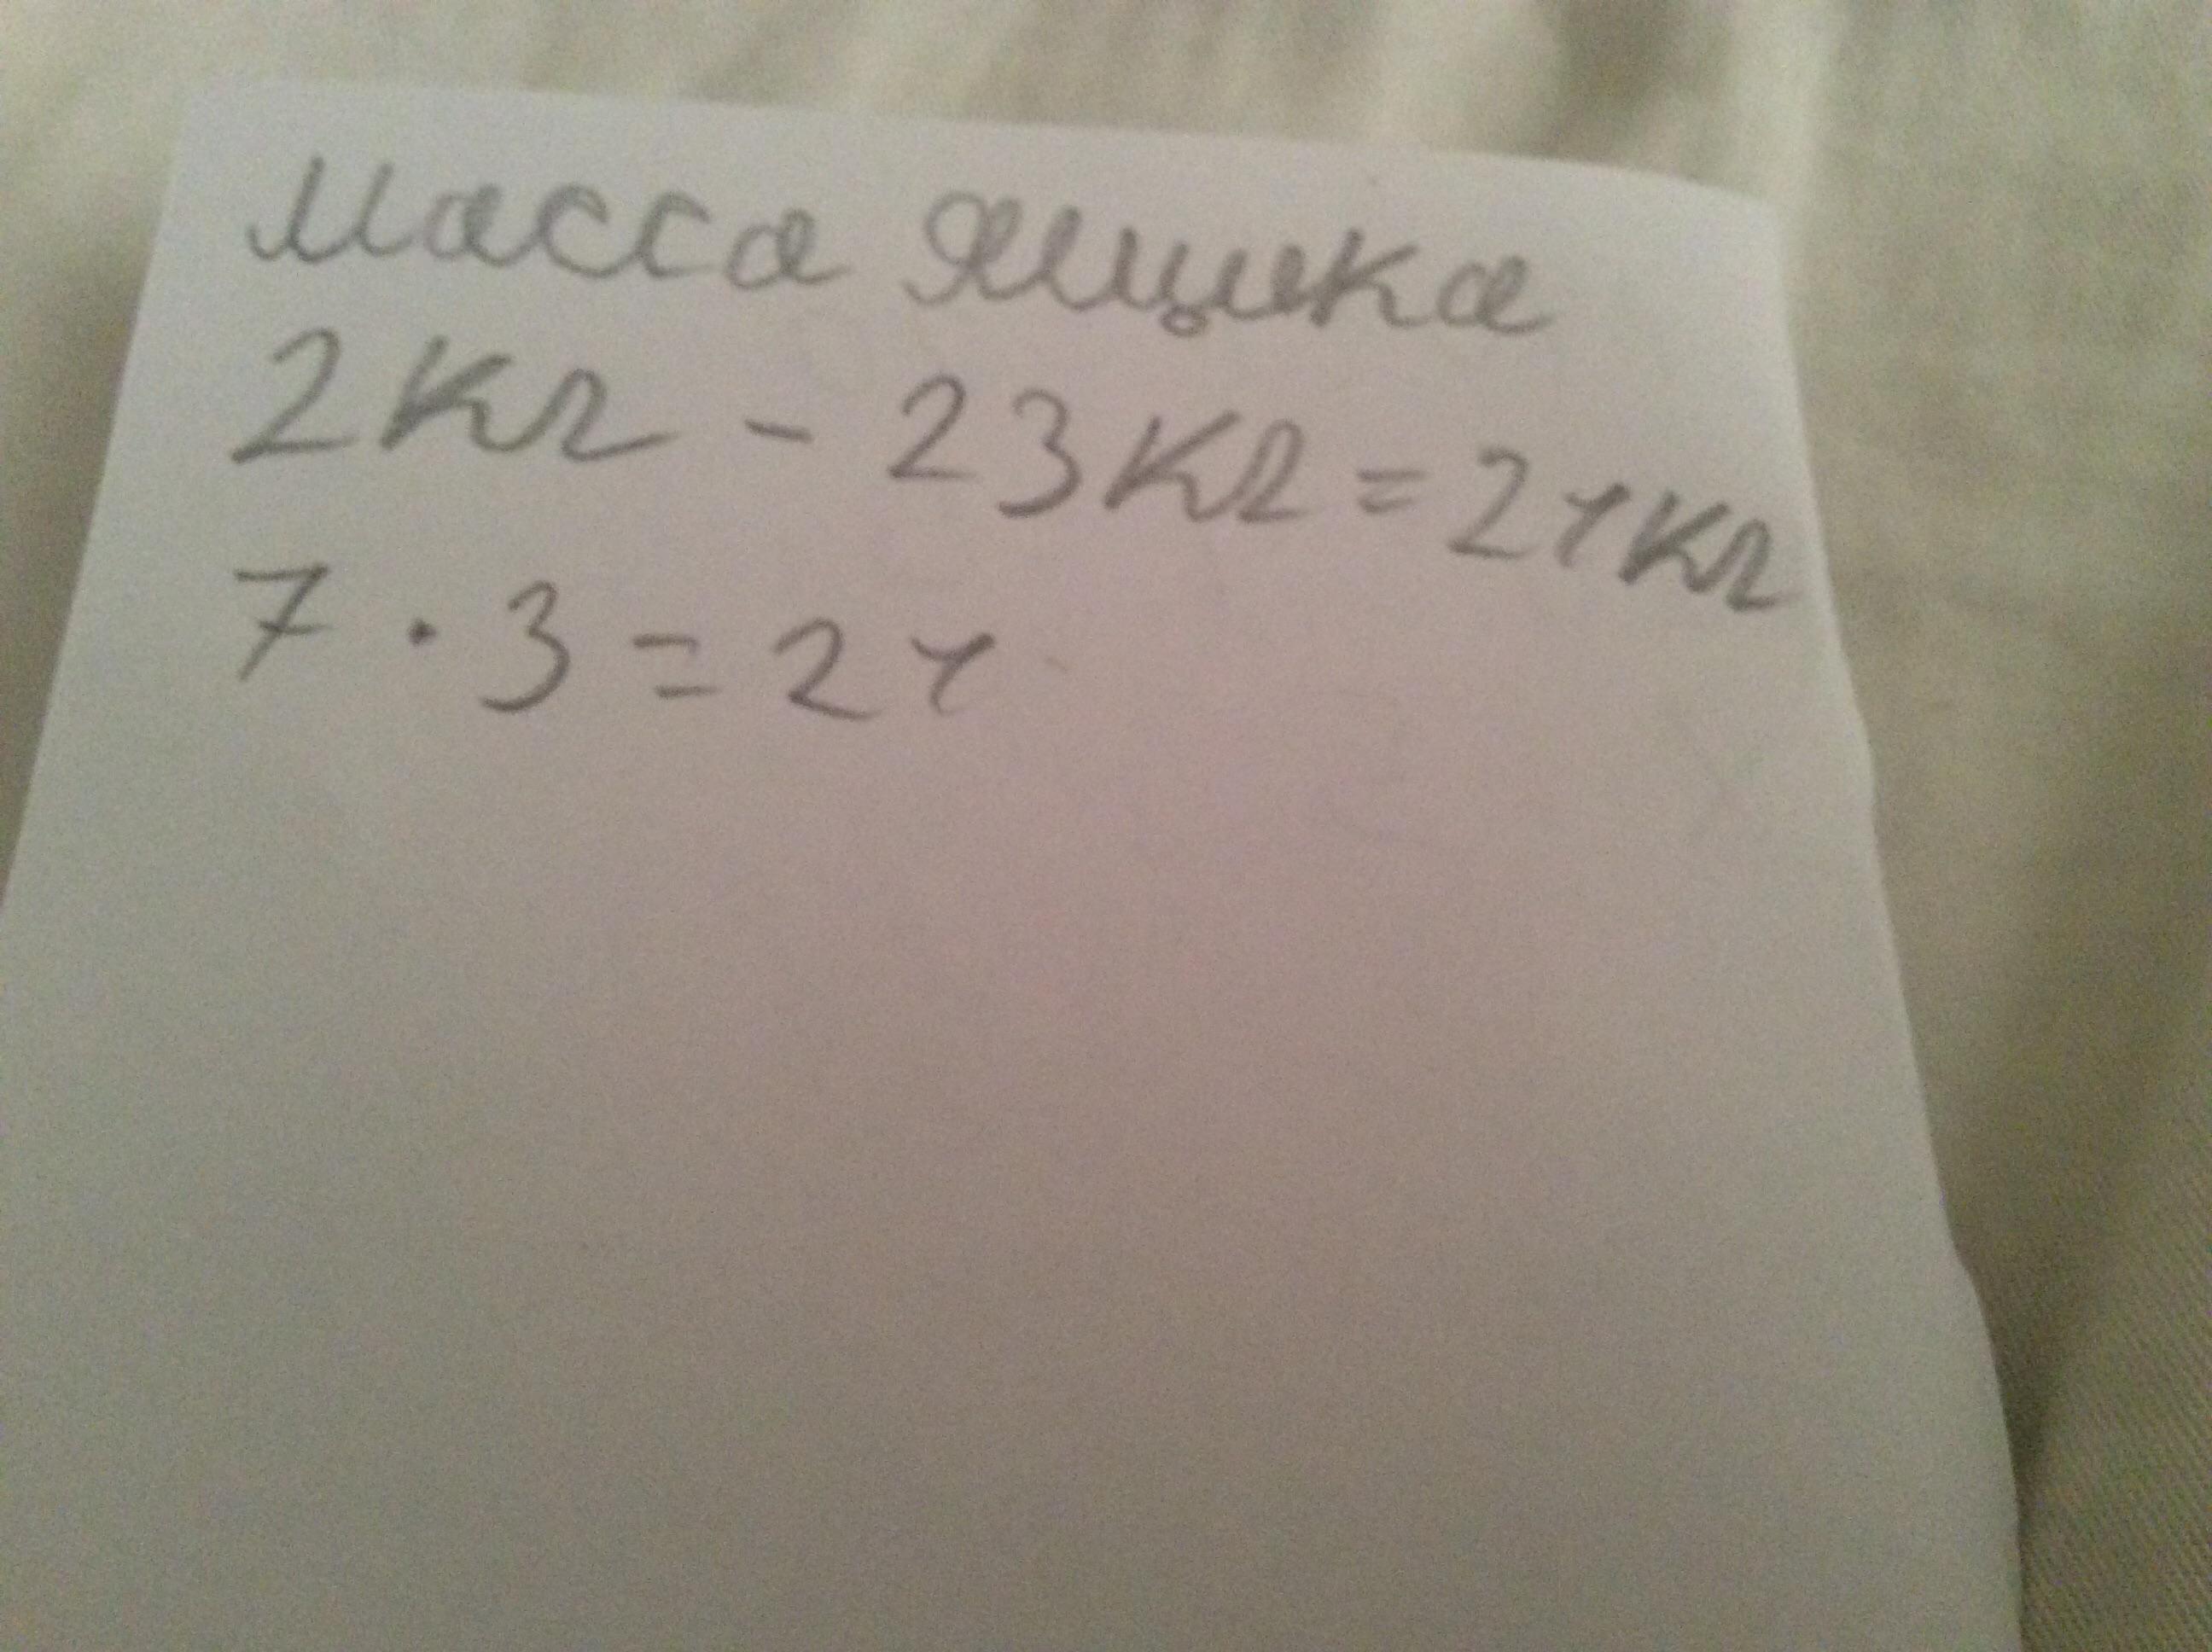 Масса ящика
2кг - 23кг = 21кг
7 · 3 = 21